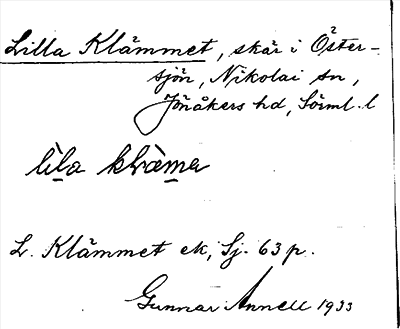 Lilla Klämmet, skär i Öster-
sjön, Nikolai sn,
Jönåkers hd, Sörml. l
lìla klæ̀mə
L. Klämmet ek, Sj. 63 p.
Gunnar Annell 1933